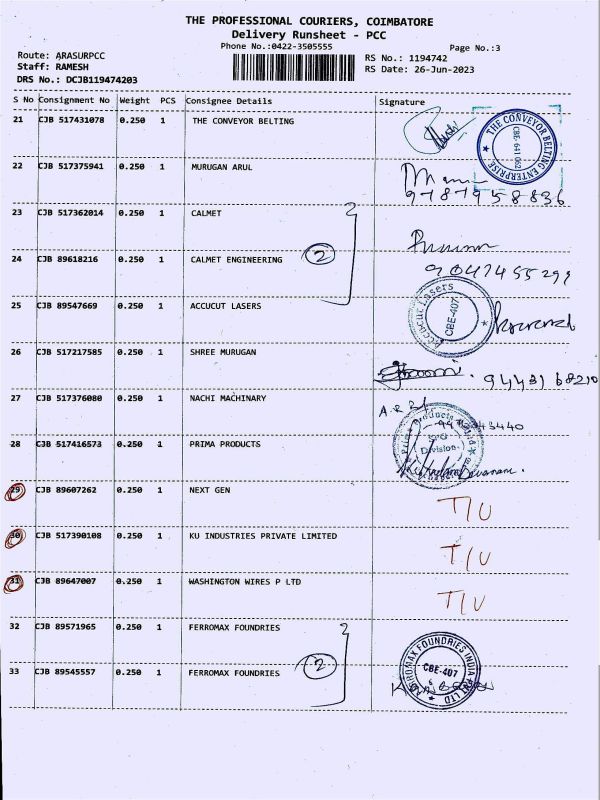 THE PROFESSIONAL COURIERS, COIMBATORE
Delivery Runsheet - PCC
Phone No.:0422-3505555
Page No.:3
Route: ARASURPCC
Staff: RAMESH
DRS No.: DCJB119474203
RS No.: 1194742
RS Date: 26-Jun-2023
S No Consignment No Weight PCS Consignee Details Signature
21 CJB 517431078 0.250 1 THE CONVEYOR BELTING
THE CONVEYOR BELTING ENTERPRISE
CBE-641 062
22 CJB 517375941 0.250 1 MURUGAN ARUL
9787958836
23 CJB 517362014 0.250 1 CALMET
24 CJB 89618216 0.250 1 CALMET ENGINEERING 2
9047455299
25 CJB 89547669 0.250 1 ACCUCUT LASERS
Accucut Lasers
CBE-407
26 CJB 517217585 0.250 1 SHREE MURUGAN
9443168210
27 CJB 517376080 0.250 1 NACHI MACHINARY
28 CJB 517416573 0.250 1 PRIMA PRODUCTS
Division
29 CJB 89607262 0.250 1 NEXT GEN T/U
30 CJB 517390108 0.250 1 KU INDUSTRIES PRIVATE LIMITED T/U
31 CJB 89647007 0.250 1 WASHINGTON WIRES P LTD T/U
32 CJB 89571965 0.250 1 FERROMAX FOUNDRIES
33 CJB 89545557 0.250 1 FERROMAX FOUNDRIES 2
FERROMAX FOUNDRIES INDIA (P) LTD
CBE-407